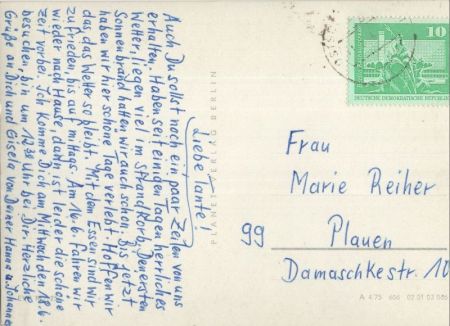 Liebe Tante!
Auch Du sollst noch ein paar Zeilen von uns
erhalten. Haben seit einigen Tagen herrliches
Wetter, liegen viel im Strandkorb, den ersten
Sonnenbrand hatten wir auch schon. Bis jetzt
haben wir hier schöne Tage verlebt. Hoffen wir
das das Wetter so bleibt. Mit dem Essen sind wir
zufrieden bis auf mittags. Am 16.6. fahren wir
wieder nach Hause, dann ist leider die schöne
Zeit vorbei. Ich komme Dich am Mittwoch den 18.6.
besuchen, bin um 12.30 Uhr bei Dir. Herzliche
Grüße an Dich und Gisela von Deiner Hanna u. Johannes
PLANET-VERLAG BERLIN
10
DEUTSCHE DEMOKRATISCHE REPUBLIK
Frau
Marie Reiher
99 Plauen
Damaschkestr. 10
A 4/75